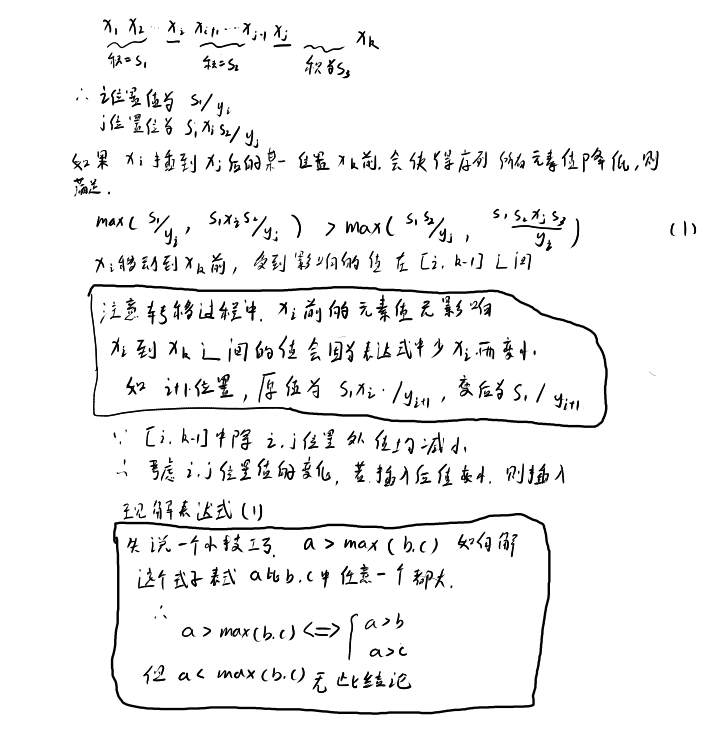 x₁ x₂ … xᵢ xᵢ₊₁ … xⱼ₋₁ xⱼ xₖ
积=S₁ 积=S₂ 积为S₃
∴ i位置值为 S₁/yᵢ
j位置值为 S₁xᵢS₂/yⱼ
如果 xᵢ 插到 xⱼ 后的某一位置 xₖ前. 会使得序列所有元素值降低,则
满足.
max( S₁/yᵢ , S₁xᵢS₂/yⱼ ) > max( S₁S₂/yⱼ , S₁S₂xⱼS₃/yᵢ ) (1)
xᵢ移动到 xₖ前, 受到影响的值在 [i, k-1] 之间
注意转移过程中. xᵢ前的元素值无影响
xᵢ 到 xₖ 之间的值会因为表达式中少 xᵢ 而变小.
如 i+1位置, 原值为 S₁xᵢ·/yᵢ₊₁ , 变后为 S₁/yᵢ₊₁
∵ [i. k-1]中除 i.j位置外值均减小
∴ 考虑 i.j位置值的变化, 若插入后值变小. 则插入
现解表达式(1)
先说一个小技巧. a > max(b.c) 如何解
这个式子表示 a比 b.c 中任意一个都大.
∴
a > max(b.c) <=> { a>b
a>c
但 a < max(b.c) 无此结论